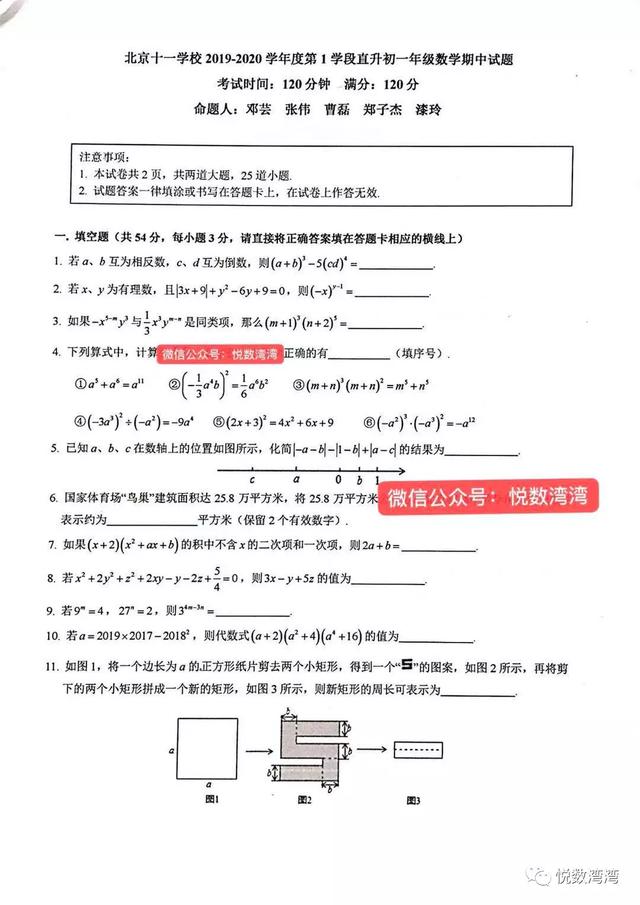 北京十一学校 2019-2020 学年度第 1 学段直升初一年级数学期中试题
考试时间：120 分钟 满分：120 分
命题人：邓芸 张伟 曹磊 郑子杰 漆玲
注意事项：
1. 本试卷共 2 页，共两道大题，25 道小题.
2. 试题答案一律填涂或书写在答题卡上，在试卷上作答无效.
一. 填空题（共 54 分，每小题 3 分，请直接将正确答案填在答题卡相应的横线上）
1. 若 a、b 互为相反数，c、d 互为倒数，则 (a+b)³-5(cd)⁴=____________.
2. 若 x、y 为有理数，且 |3x+9|+y²-6y+9=0，则 (-x)ʸ⁻¹=____________.
3. 如果 -x⁵⁻ᵐy³ 与 1/3 x³yᵐ⁻ⁿ 是同类项，那么 (m+1)³(n+2)⁵=____________.
4. 下列算式中，计算 微信公众号：悦数湾湾 正确的有__________（填序号）.
①a⁵+a⁶=a¹¹ ②(-1/3 a⁴b)²=1/6 a⁶b² ③(m+n)³(m+n)²=m⁵+n⁵
④(-3a³)²÷(-a²)=-9a⁴ ⑤(2x+3)²=4x²+6x+9 ⑥(-a²)³·(-a³)²=-a¹²
5. 已知 a、b、c 在数轴上的位置如图所示，化简 |-a-b|-|1-b|+|a-c| 的结果为____________.
c a 0 b 1
6. 国家体育场“鸟巢”建筑面积达 25.8 万平方米，将 25.8 万平方米 微信公众号：悦数湾湾
表示约为______________平方米（保留 2 个有效数字）.
7. 如果 (x+2)(x²+ax+b) 的积中不含 x 的二次项和一次项，则 2a+b=____________.
8. 若 x²+2y²+z²+2xy-y-2z+5/4=0，则 3x-y+5z 的值为____________.
9. 若 9ᵐ=4，27ⁿ=2，则 3⁴ᵐ⁻³ⁿ=____________.
10. 若 a=2019×2017-2018²，则代数式 (a+2)(a²+4)(a⁴+16) 的值为____________.
11. 如图 1，将一个边长为 a 的正方形纸片剪去两个小矩形，得到一个“S”的图案，如图 2 所示，再将剪
下的两个小矩形拼成一个新的矩形，如图 3 所示，则新矩形的周长可表示为____________.
a
a
图1
b
b
b
b
b
图2
图3
悦数湾湾